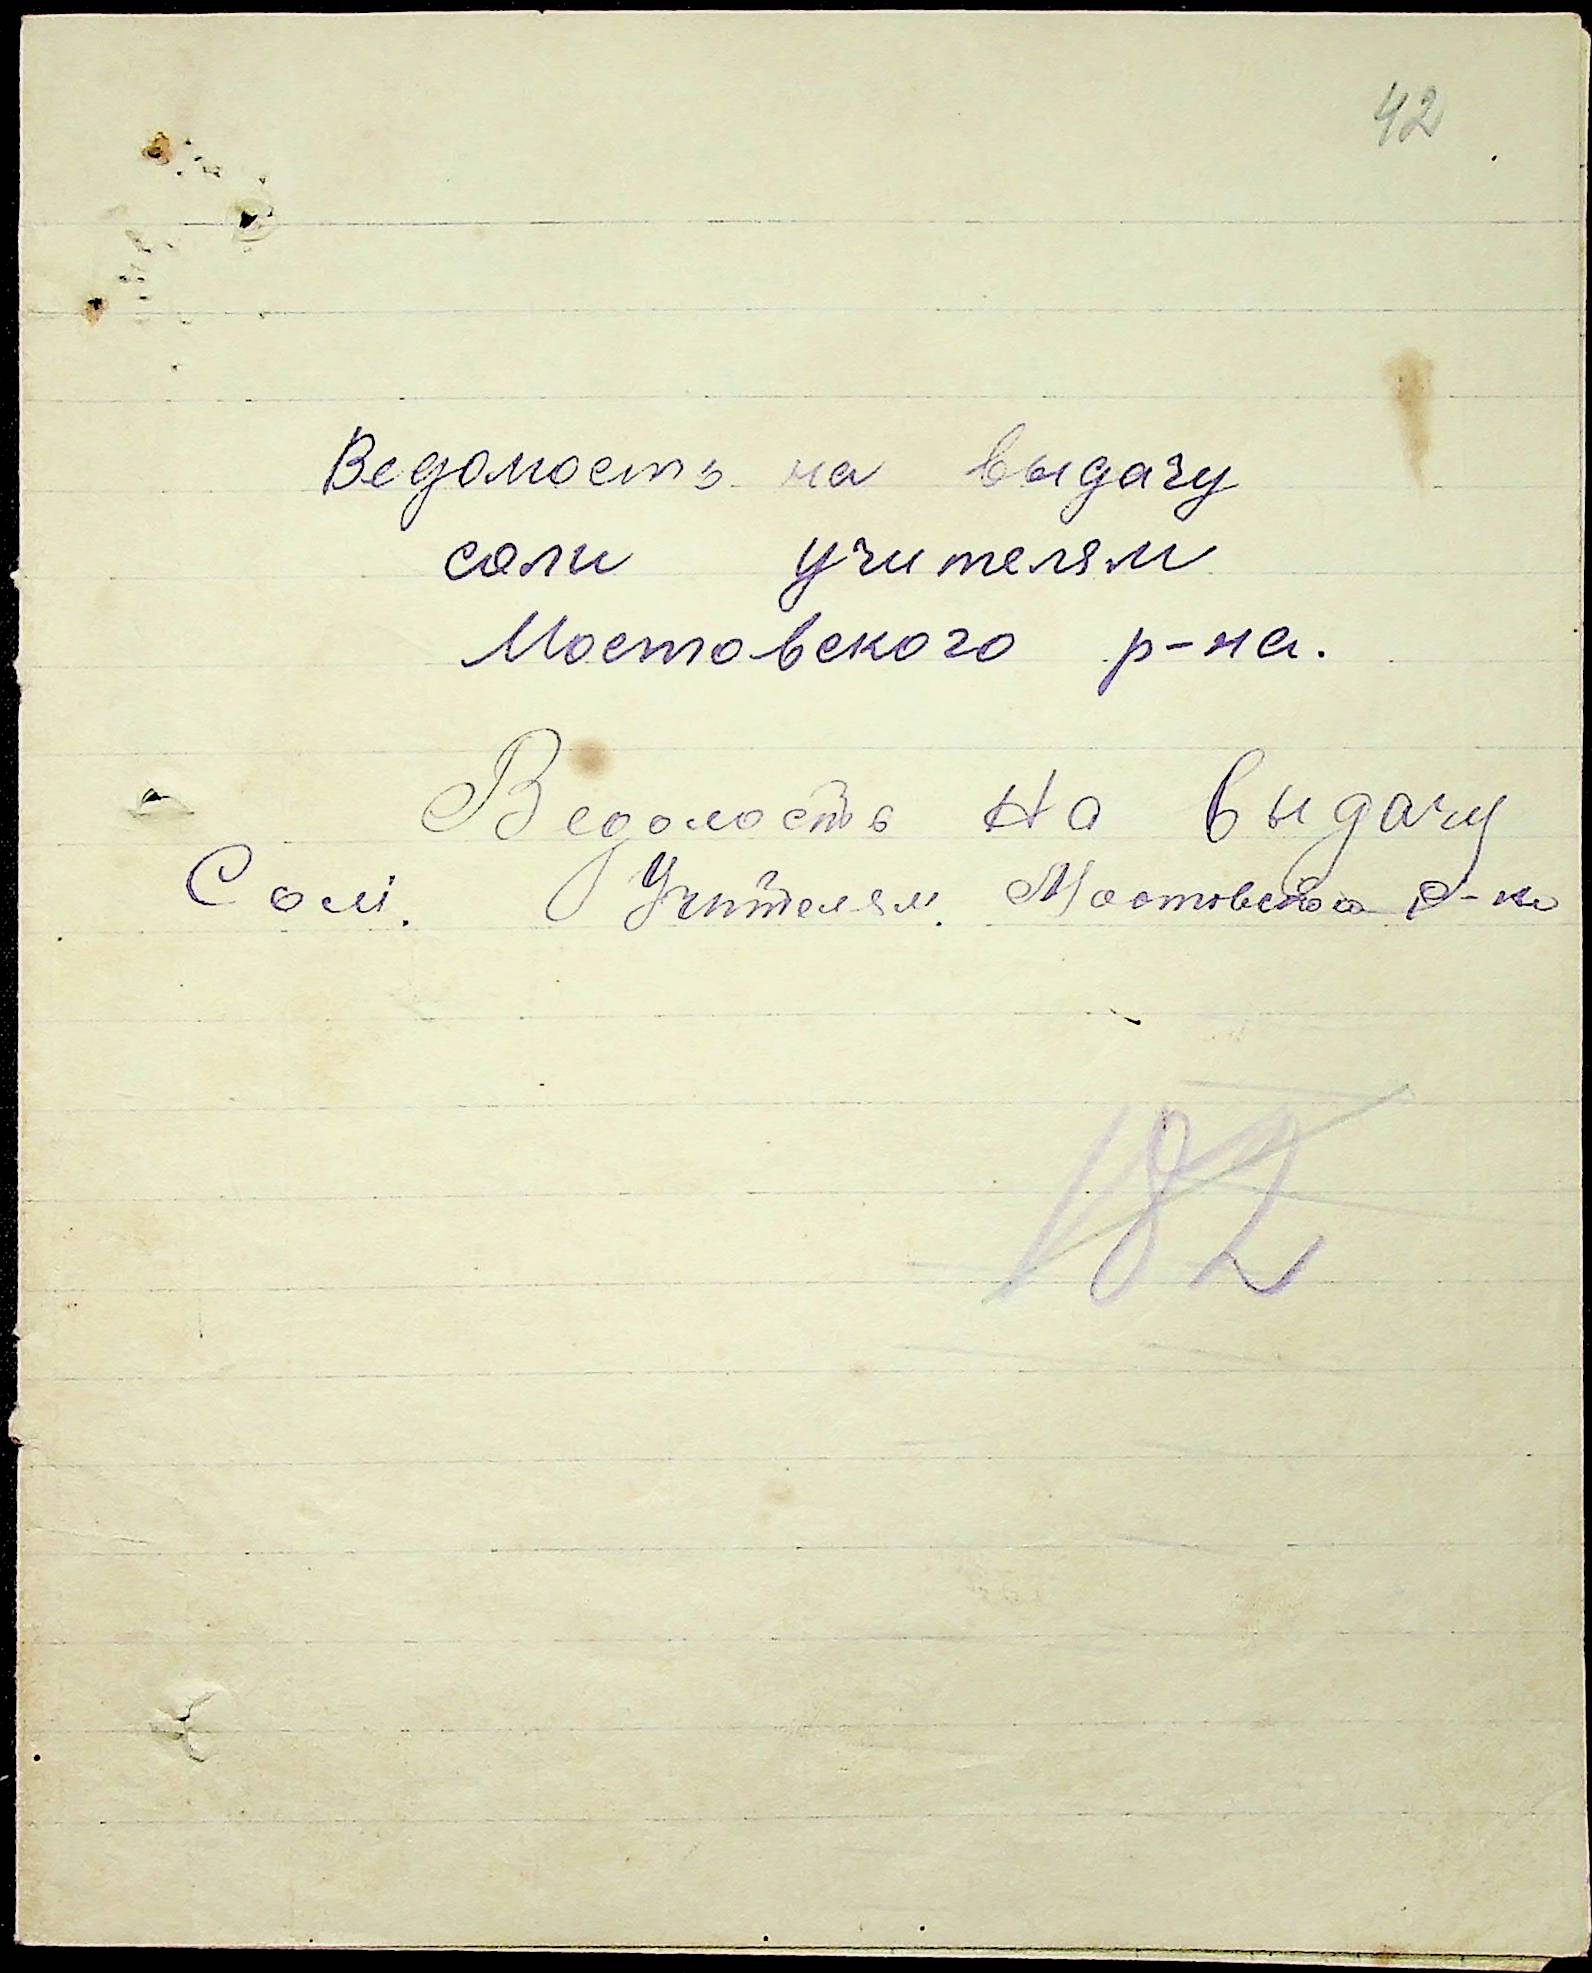 42
Ведомость на выдачу
соли учителям
Мостовского р-на.
Ведомость На выдачу
Солі. Учителям. Мостовского р-на
182